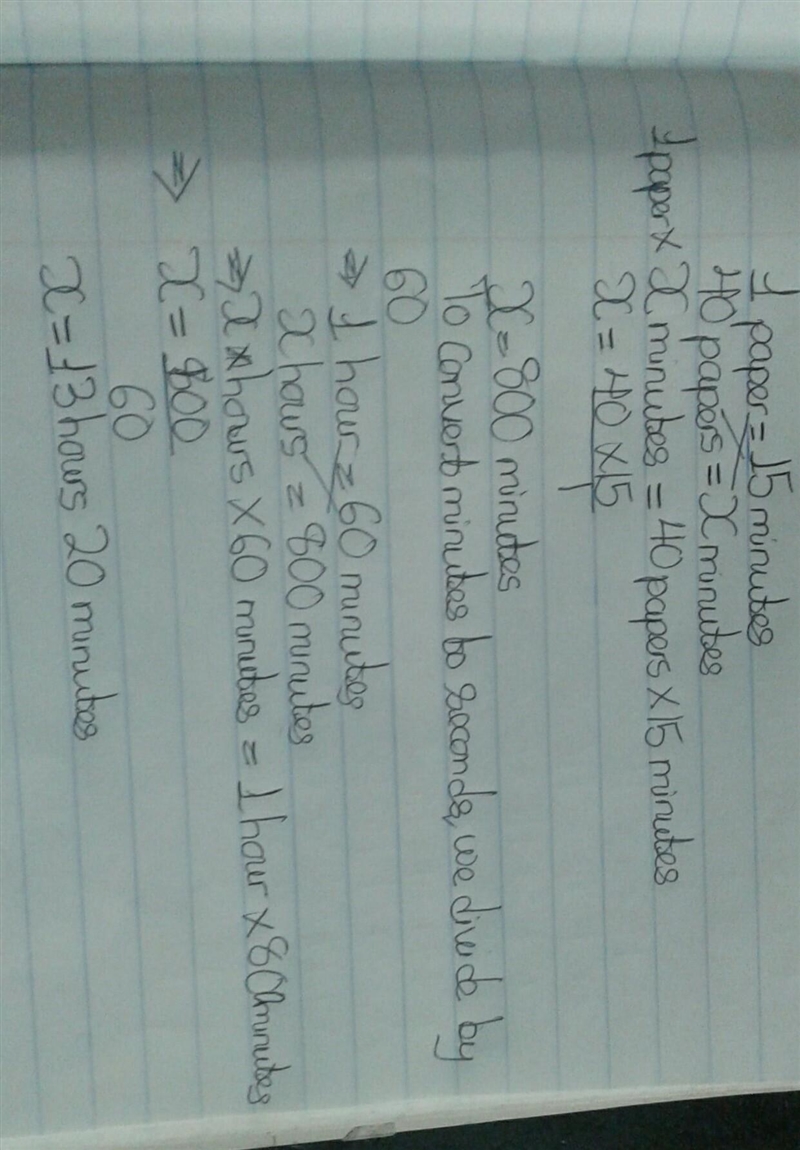 1 paper = 15 minutes
40 papers = x minutes
1 paper × x minutes = 40 papers × 15 minutes
x = 40 × 15
1
x = 800 minutes
To convert minutes to seconds, we divide by
60
⇒ 1 hour = 60 minutes
x hours = 800 minutes
⇒ x hours × 60 minutes = 1 hour × 800minutes
⇒ x = 800
60
x = 13 hours 20 minutes